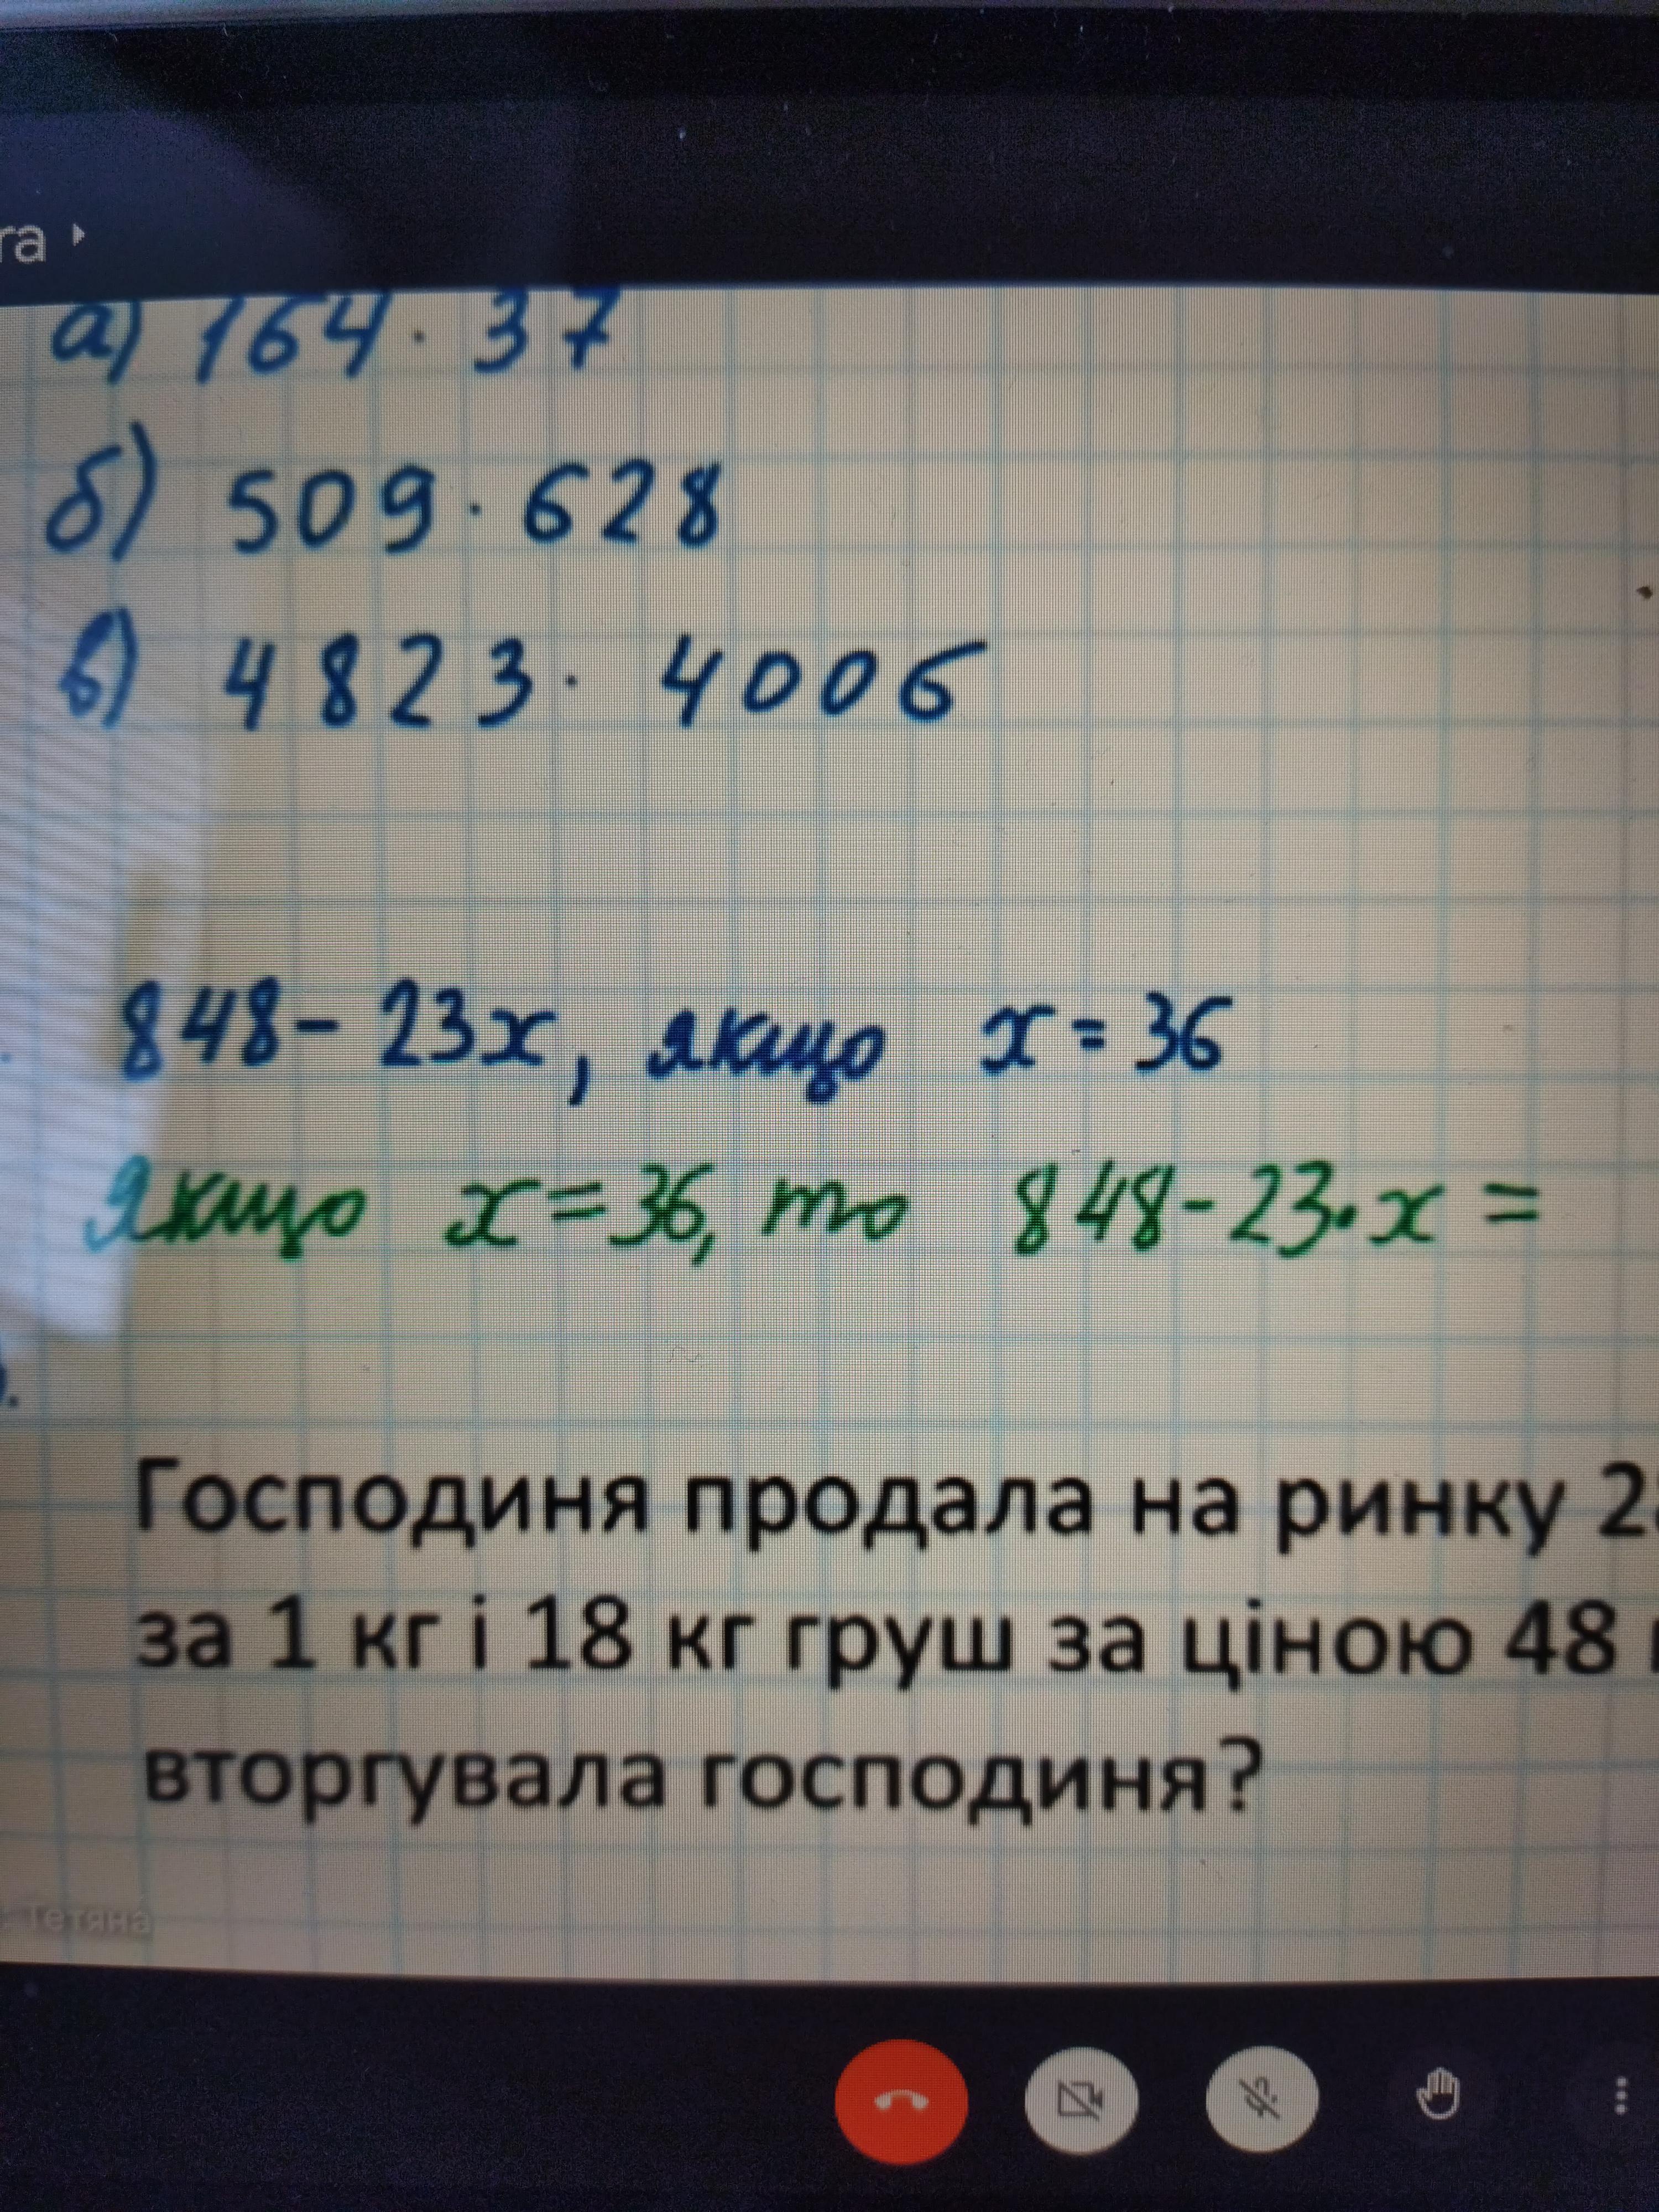 а) 164 · 37
б) 509 · 628
в) 4823 · 4006
848 - 23x, якщо x = 36
Якщо x = 36, то 848 - 23 · x =
Господиня продала на ринку
за 1 кг і 18 кг груш за ціною 48
вторгувала господиня?
Тетяна